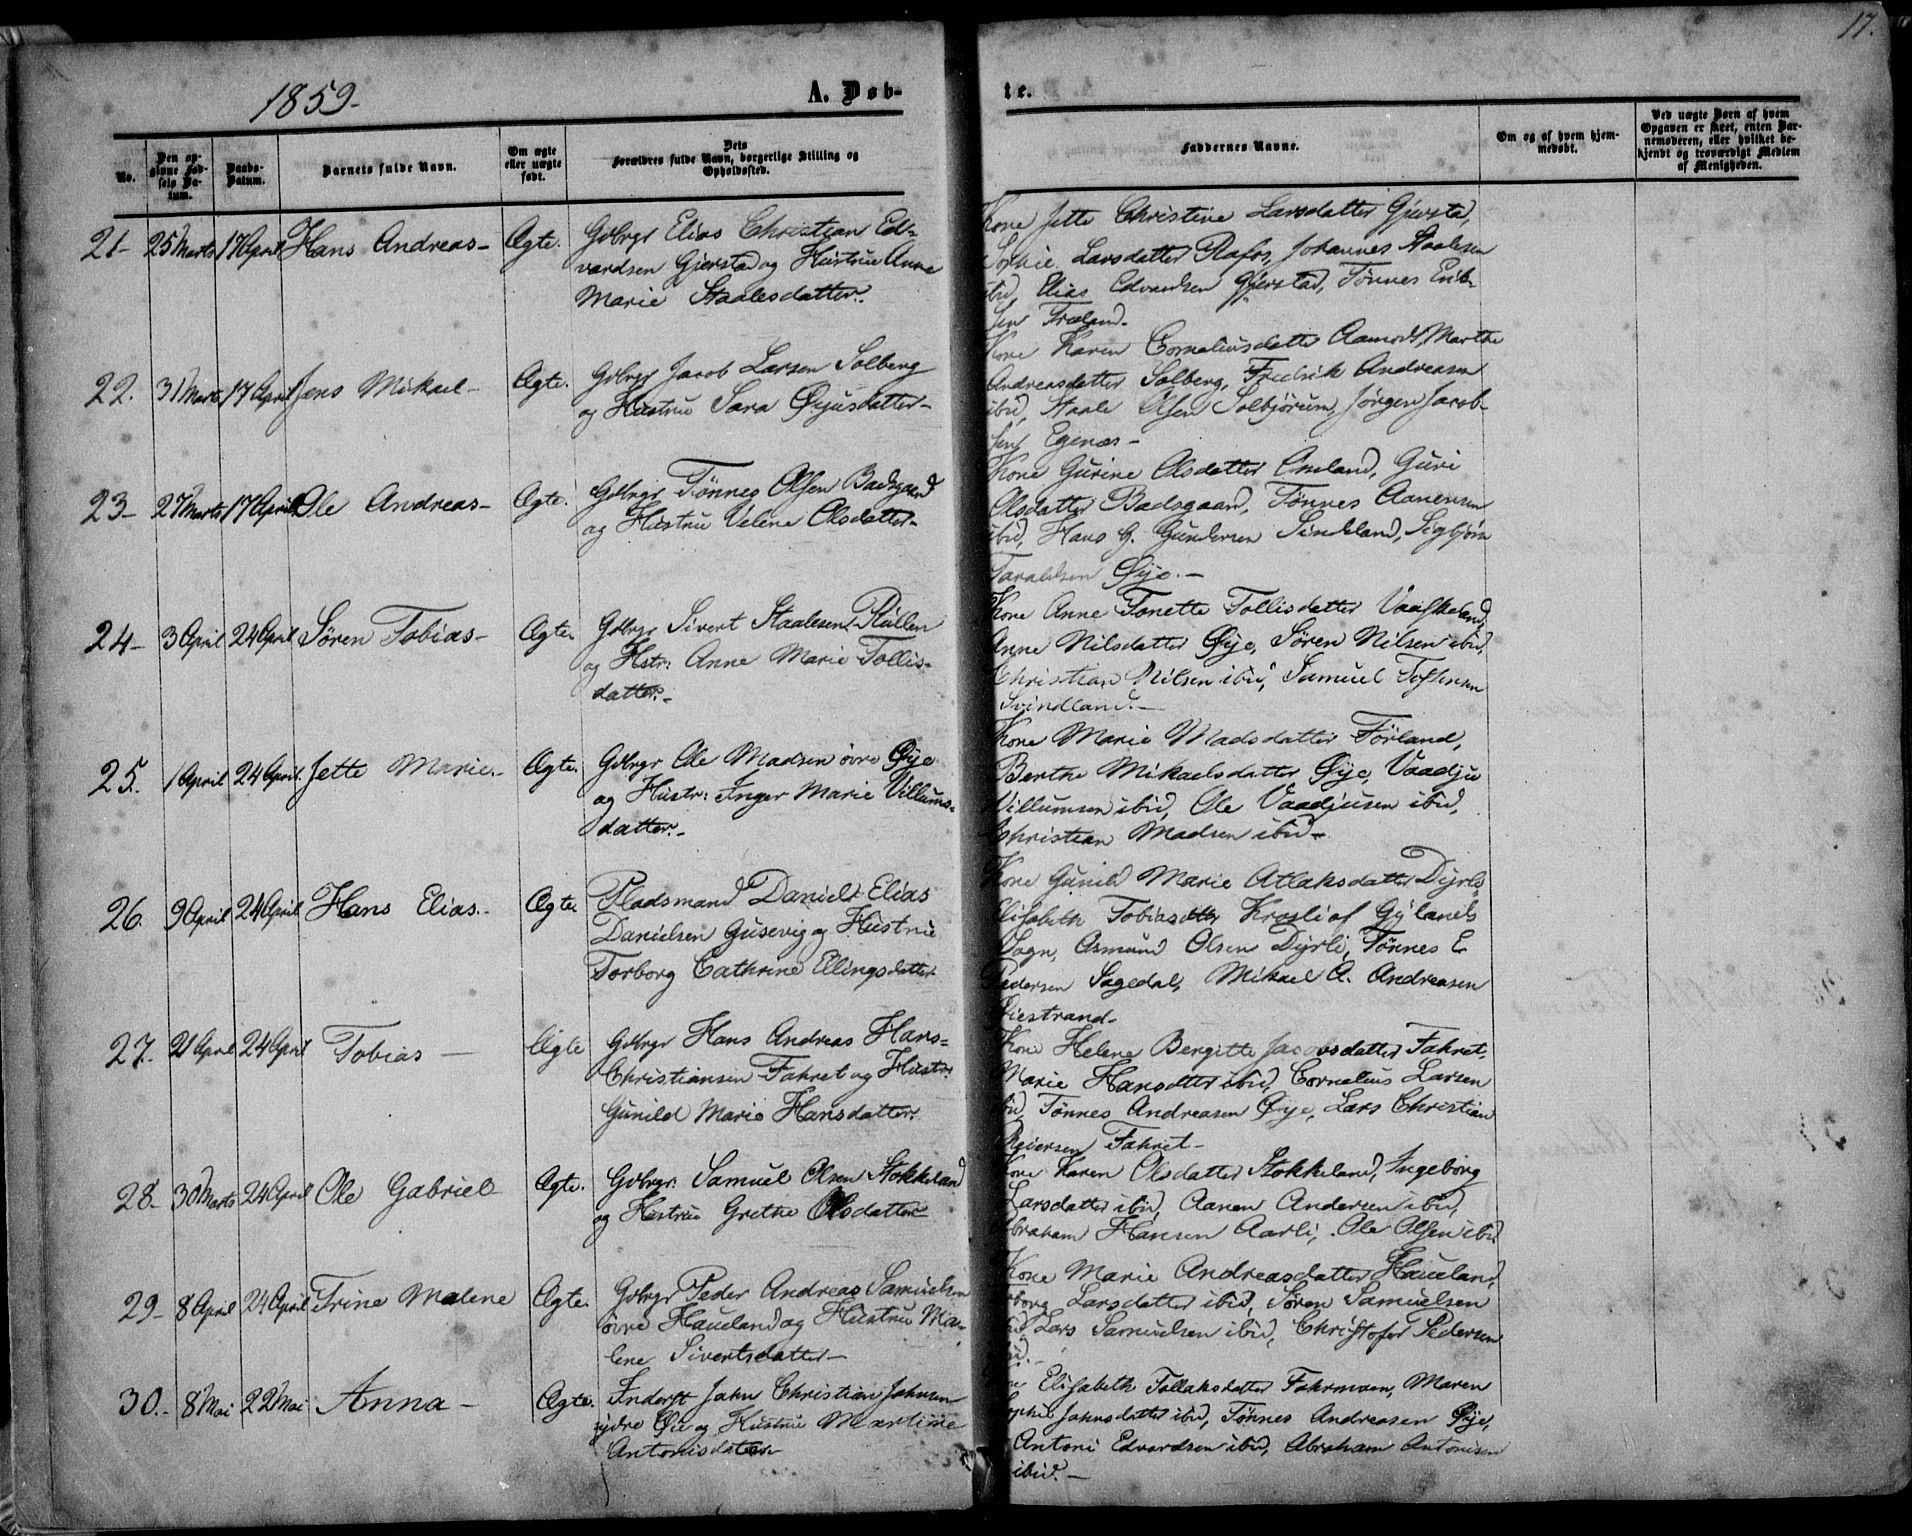 17.
1859.
A. Døb-
te.
No.
Den op-
givne Fød-
sels Da-
tum.
Daabs-
Datum.
Barnets fulde Navn.
Om ægte
eller uægte
født.
Dets
Forældres fulde Navn, borgerlige Stilling og
Opholdssted.
Faddernes Navne.
Om og af hvem hjem-
medøbt.
Ved uægte Børn af hvem
Opgaven er skeet, enten Bar-
nemoderen, eller hvilket be-
kjendt og troværdigt Medlem
af Menigheden.
21- 25 Marts 17 April Hans Andreas- Ægte.
Gdbrgr Elias Christian Ed-
vardsen Gjerstad og Hustrue Anne
Marie Staalesdatter.
Kone Jette Christine Larsdatter Gjerstad,
Larsdatter Rafos, Johannes Staalesen
ibid, Elias Edvardsen Gjerstad, Tønnes Erik-
sen Træland.
22. 31 Marts 17 April Jens Mikael- Ægte.
Gdbrgr Jacob Larsen Solberg
og Hustrue Sara Øijusdatter-
Kone Karen Corneliusdatter Aamodt, Marthe
Andreasdatter Solberg, Fredrik Andreasen
ibid, Staale Olsen Solbjørum, Jørgen Jacob-
sen Egenæs-
23- 27 Marts 17 April Ole Andreas- Ægte.
Gdbrgr Tønnes Olsen Badsgaard
og Hustrue Velene Olsdatter-
Kone Gurine Olsdatter Omland, Guri
Olsdatter Badsgaard, Tønnes Aanensen
ibid, Hans G. Gundersen Sindland, Sigbjørn
Taraldsen Øije.-
24- 3 April 24 April Søren Tobias- Ægte.
Gdbrgr Sivert Staalesen Rullen
og Hstr: Anne Marie Tollis-
datter.-
Kone Anne Tonette Tollisdatter
Anne Nilsdatter Øije, Søren Nilsen ibid,
Christian Nilsen ibid, Samuel Tostensen
Svindland.-
25. 1 April 24 April Jette Marie- Ægte.
Gdbrgr Ole Madsen øvre Øije
og Hustr: Inger Marie Villums-
datter.-
Kone Marie Madsdatter Førland,
Berthe Mikaelsdatter Øije, Vaadju
Villumsen ibid, Ole Vaadjusen ibid,
Christian Madsen ibid-
26. 9 April 24 April Hans Elias.- Ægte
Pladsmand Daniel Elias
Danielsen Gusevig og Hustrue
Torborg Cathrine Ellingsdatter
Kone Gunild Marie Atlaksdatter Dyrli,
Elisabeth Tobiasdtr Krosli af Gylands
Sogn, Asmund Olsen Dyrli, Tønnes E
Pedersen Sagedal, Mikael A. Andreasen
Øiestrand-
27. 21 April 24 April Tobias- Ægte
Gdbrgr Hans Andreas Hans-
Christiansen Fahret og Hustr:
Gunild Marie Hansdatter.
Kone Helene Bergitte Jacobsdatter Fahret,
Marie Hansdtter ibid, Cornelius Larsen
ibid, Tønnes Andreasen Øije, Lars Christian
Reiersen Fahret-
28- 30 Marts 24 April Ole Gabriel- Ægte.
Gdbrgr. Samuel Olsen Stokkeland
og Hustrue Grethe Olsdatter-
Kone Karen Olsdatter Stokkeland, Ingeborg
Larsdatter ibid, Aanen Andersen ibid,
Abraham Hansen Aarli, Ole Olsen ibid
29- 8 April 24 April Trine Malene Ægte.
Gdbrgr Peder Andreas Samuelsen
øvre Haueland og Hustrue Ma-
lene Sivertsdatter-
Kone Marie Andreasdatter Haueland,
Larsdatter ibid, Søren Samuelsen
ibid, Lars Samuelsen ibid, Christofer Pedersen
ibid.-
30.- 8 Mai 22 Mai Anna- Ægte.
Inderst Jahn Christian Jahnsen
ydre Øie og Hustrue Martine
Antonisdatter-
Kone Elisabeth Tollaksdatter Fahrmoen, Maren
Sophie Jahnsdatter ibid, Tønnes Andreasen Øije,
Antoni Edvardsen ibid, Abraham Antonisen
ibid.-